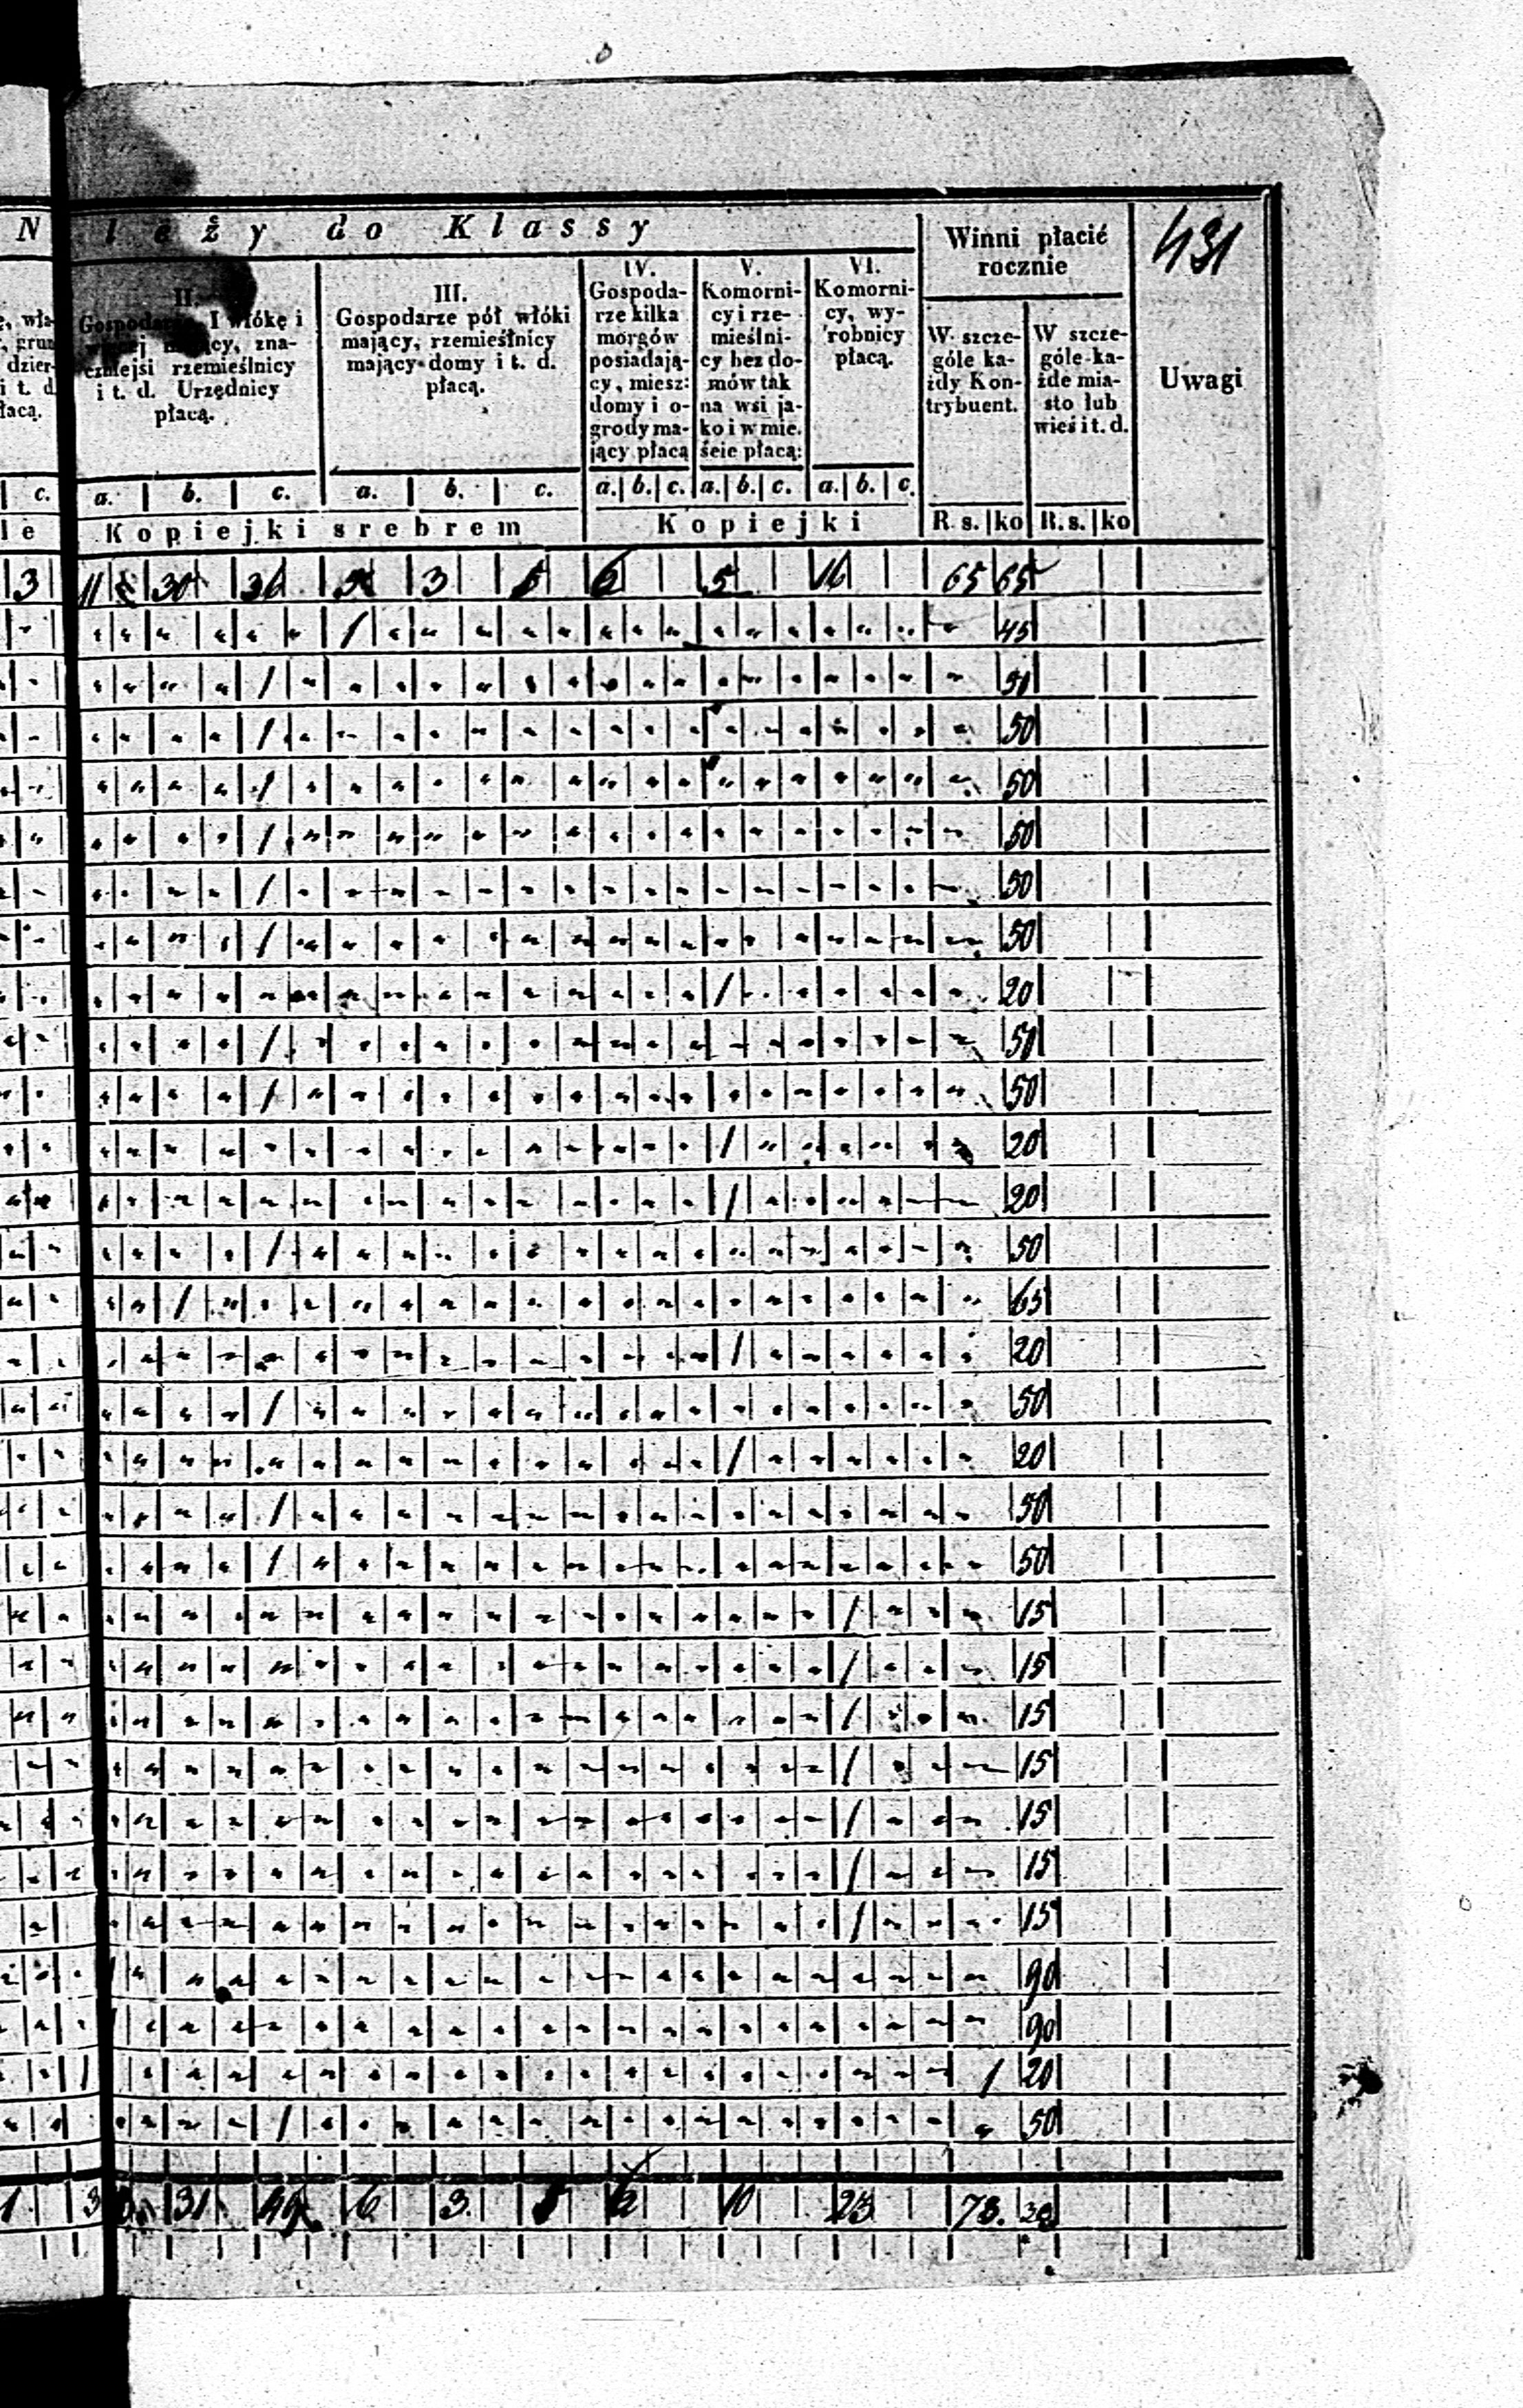 N leży do Klassy
Winni płacić
rocznie
431
c.
II.
Gospodarze I włókę i
mający, zna-
czniejsi rzemieślnicy
i t. d. Urzędnicy
płacą.
III.
Gospodarze pół włóki
mający, rzemieślnicy
mający domy i t. d.
płacą.
IV.
Gospoda-
rze kilka
morgów
posiadają-
cy, miesz:
domy i o-
grody ma-
jący płacą
V.
Komorni-
cy i rze-
mieślni-
cy bez do-
mów tak
na wsi ja-
ko i w mie.
ście płacą:
VI.
Komorni-
cy, wy-
robnicy
płacą.
W szcze-
góle ka-
żdy Kon-
trybuent.
W szcze-
góle ka-
żde mia-
sto lub
wieś i t. d.
Uwagi
a. b. c. a. b. c. a. b. c. a. b. c. a. b. c.
Kopiejki srebrem Kopiejki R. s. ko R. s. ko
3 11 30 36 3 5 16 65 65
/ 45
/ 50
/ 50
/ 50
/ 50
/ 50
/ 50
/ 20
/ 50
/ 50
/ 20
/ 20
/ 50
/ 65
/ 20
/ 50
/ 20
/ 50
/ 50
/ 15
/ 15
/ 15
/ 15
/ 15
/ 15
/ 15
90
90
/ 1 20
/ 50
1 3 31 49 6 3 10 23 78. 30